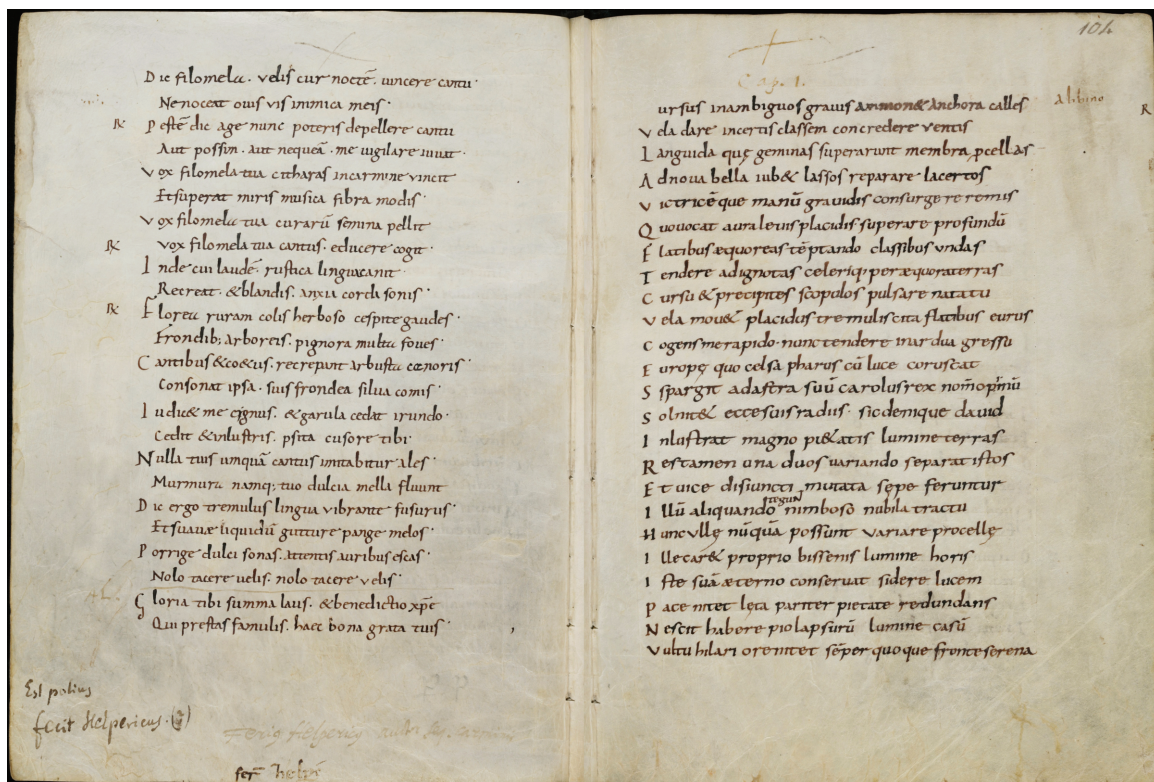 Dic filomela. velis cur noctē. vincere cantu.
Ne noceat ovis vis inimica meis.
Pestē dic age nunc poteris depellere cantu
Aut possim. aut nequeā. me vigilare iuvat.
Vox filomela tua citharas incarmine vincit
Et superat miris musica fibra modis.
Vox filomela tua curarū semina pellit
Vox filomela tua cantus. educere cogit.
Inde cui laudē. rustica lingua canit.
Recreat. &blandis. anxia corda sonis.
Florea ruram colis herboso cespite gaudes.
Frondib; arboreis. pignora multa foves.
Cantibus &co&us. recrepunt arbusta cœnoris
Consonat ipsa. suis frondea silva comis.
Iudic& me cignus. & garula cedat irundo.
Cedit &inlustris. psita cusore tibi.
Nulla tuis umquā cantus imitabitur ales.
Murmura namq; tuo dulcia mella fluunt
Dic ergo tremulus lingua vibrante susurus.
Et suavæ liquidū gutture pange melos.
Porrige dulci sonas. attentis auribus escas.
Nolo tacere velis. nolo tacere velis.
Gloria tibi summa laus. &benedictio xpe
Qui prestas famulis. haec bona grata tuis.
Est potius
fecit Helpericus.
104
Cap. I.
ursus inambiguos gravis ammon& Anchora calles
Vela dare incertis classem concredere ventis
Languida quę geminas superarunt membra pcellas
Ad nova bella iub& lassos reparare lacertos
Victricē que manū gravidis consurgere remis
Quo vocat aura levis placidis superare profundū
Elatibus æquoreas tēptando classibus undas
Tendere adignotas celeriq; per æquora terras
Cursu & precipites scopolos pulsare natatu
Vela mov& placidus tremulis cita flatibus eurus
Cogens me rapido. nunc tendere in ardua gressu
Europę quo celsa pharus cū luce coruscat
Sspargit adastra suū carolus rex nom opimū
Sol nit& ecce suis radiis. sic denique david
Inlustrat magno pi&atis lumine terras
Res tamen una duos variando separat istos
Et vice disiuncti mutata sępe feruntur
Illū aliquando tegun nimboso nubila tractu
Hunc ullę nūquā possunt variare procellę
Ille car& proprio bissenis lumine horis
Iste suā æterno conservat sidere lucem
Pace nitet lęta pariter pietate redundans
Nescit habere pio lapsurū lumine casū
Vultu hilari ore nitet sēper quoque fronte serena